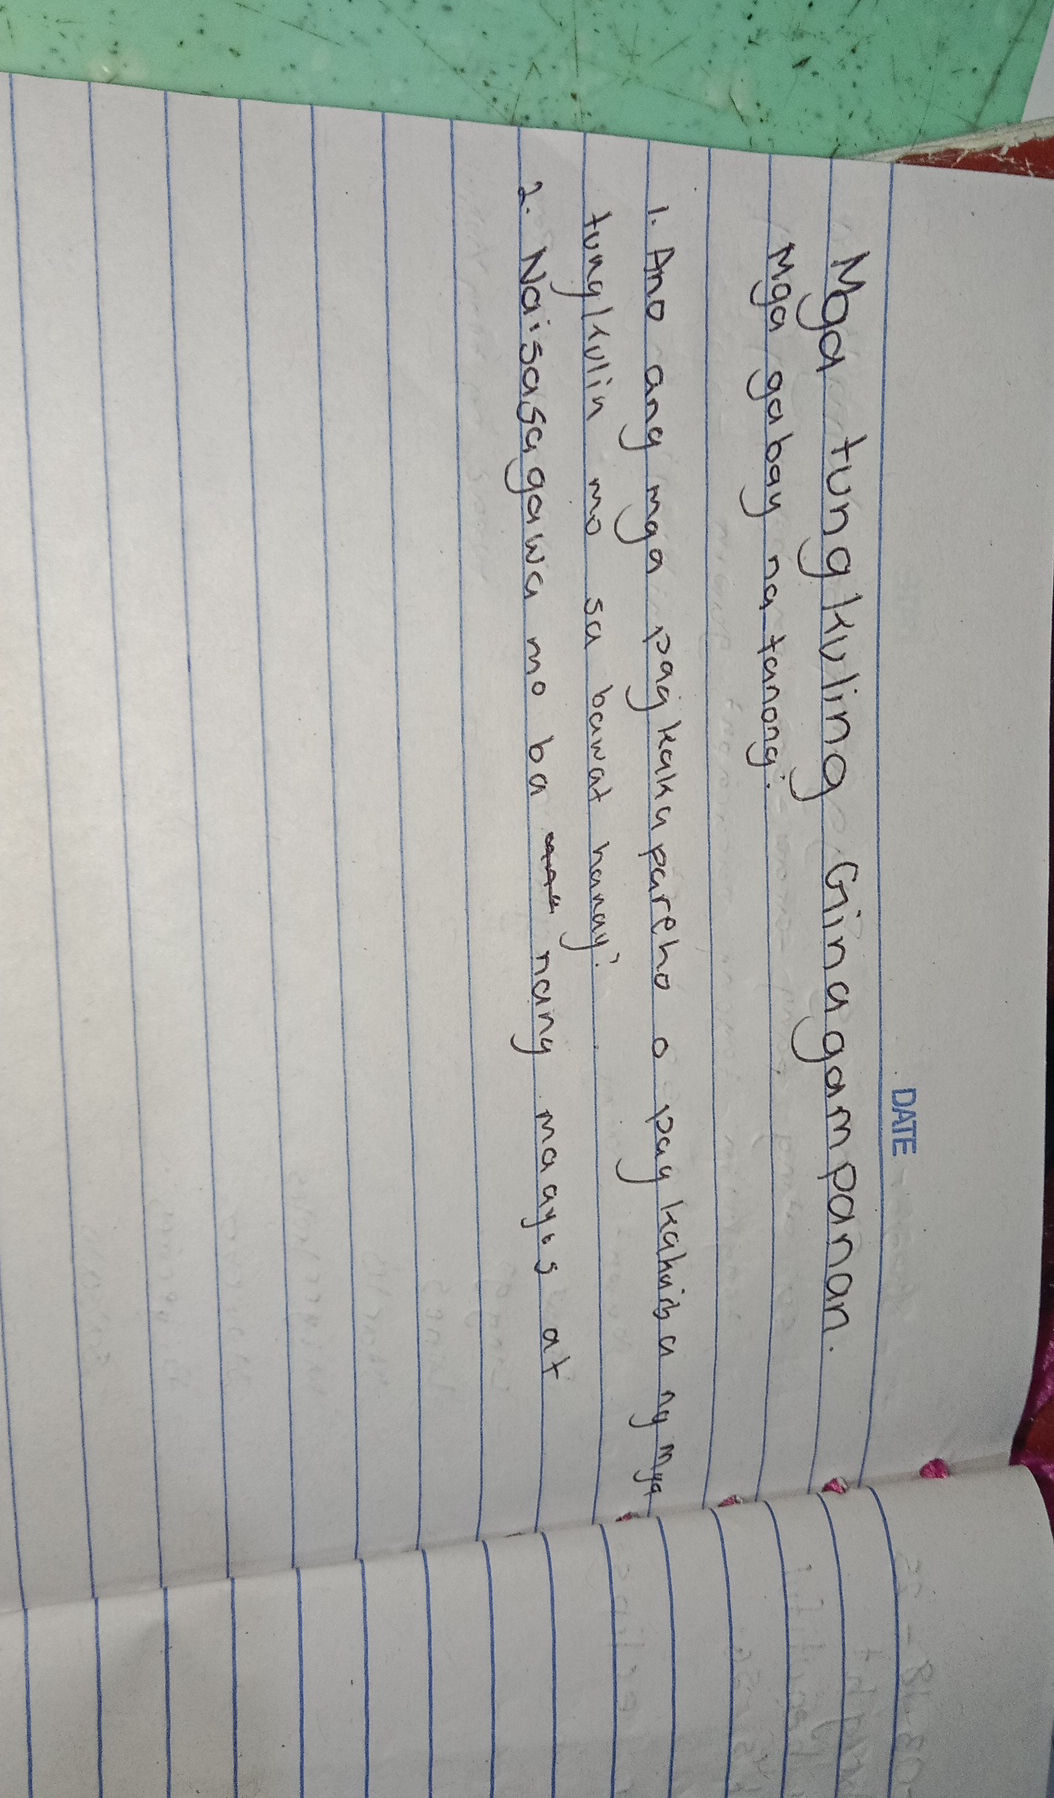 DATE
Mga tungkuling Ginagampanan.
Mga gabay na tanong:
1. Ano ang mga pagkakapareho o pagkakaiba ng mga
tungkulin mo sa bawat hanay?
2. Naisasagawa mo ba nang maayos at